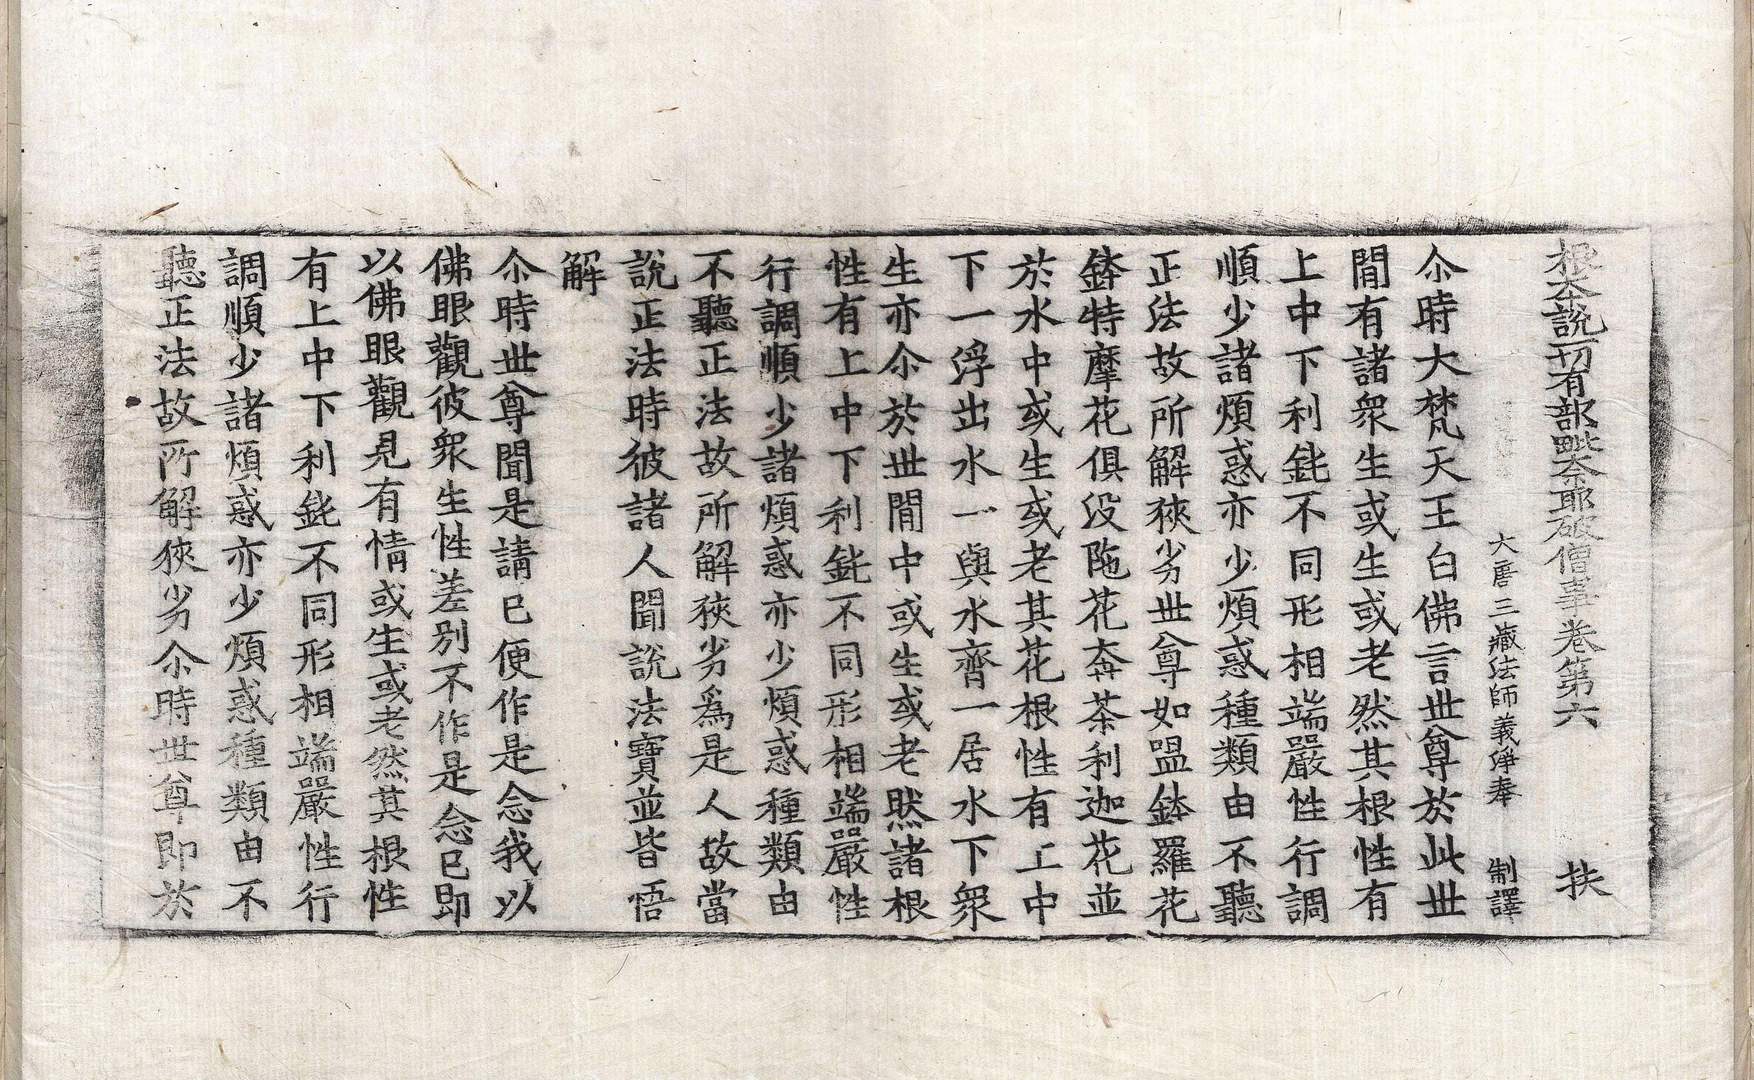 根本說一切有部毗奈耶破僧事卷第六　扶
大唐三藏法師義淨奉　制譯
尒時大梵天王白佛言世尊於此世
閒有諸衆生或生或老然其根性有
上中下利鈍不同形相端嚴性行調
順少諸煩惑亦少煩惑種類由不聽
正法故所解狹劣世尊如嗢鉢羅花
鉢特摩花俱没陁花奔荼利迦花並
於水中或生或老其花根性有上中
下一浮出水一與水齊一居水下衆
生亦尒於世閒中或生或老然諸根
性有上中下利鈍不同形相端嚴性
行調順少諸煩惑亦少煩惑種類由
不聽正法故所解狹劣爲是人故當
說正法時彼諸人聞說法寶並皆悟
解
尒時世尊聞是請已便作是念我以
佛眼觀彼衆生性差别不作是念已即
以佛眼觀見有情或生或老然其根性
有上中下利鈍不同形相端嚴性行
調順少諸煩惑亦少煩惑種類由不
聽正法故所解狹劣尒時世尊即於